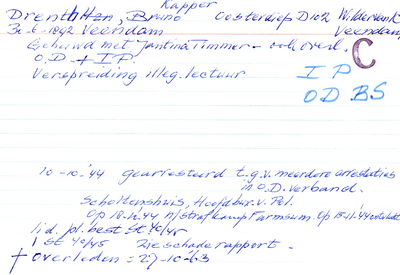 Kapper
Drenth Hzn, Bruno Oosterdiep D102 Wildervank
3-6-1892 Veendam Veendam
Gehuwd met Jantina Timmer - ook overl. C
O.D. + I.P. I P
Verspreiding illeg. lectuur OD BS
10-10-'44 gearresteerd t.g.v. meerdere arrestaties
in O.D. verband.
Scholtenshuis, Hoofdbur. v. Pol.
Op 18-11-'44 n/ strafkamp Farmsum. Op
lid. pl. best St 40/45
1 st 40/45 zie schade rapport.
† overleden = 27-10-63